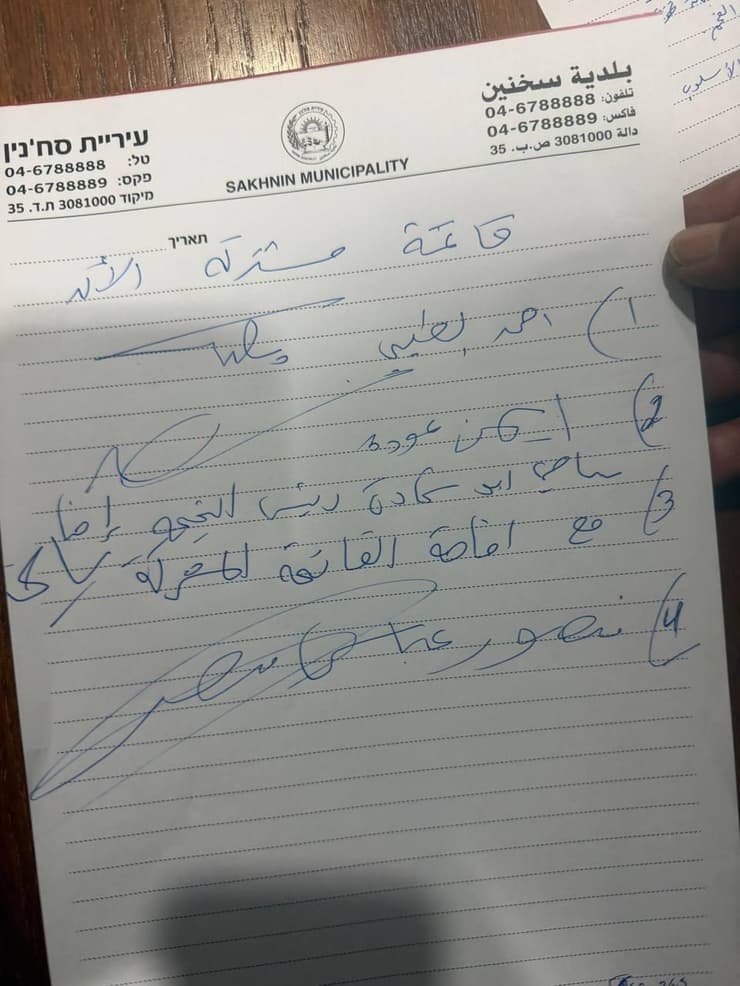 بلدية سخنين
تلفون: 04-6788888
فاكس: 04-6788889
دالة 3081000 ص.ب. 35
עיריית סח'נין
טל: 04-6788888
פקס: 04-6788889
מיקוד 3081000 ת.ד. 35
SAKHNIN MUNICIPALITY
תאריך
قائمة مشتركة الآن
1) احمد الطيبي
2) ايمن عودة
3) سامي ابو شحادة رئيس التجمع
مع اقامة القائمة المشتركة
4) منصور عباس